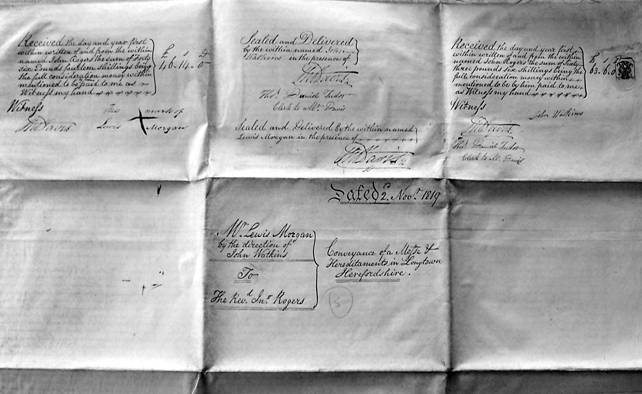 Received the day and year first
within written of and from the within
named John Rogers the sum of Forty
six Pounds fourteen shillings being
the full consideration money within
mentioned to be paid to me as
Witness my hand
£ s D
46 - 14 - 0
Witness
The mark of
Lewis Morgan
Sealed and Delivered
by the within named John
Watkins in the presence of
Thos. David Tudor
Clerk to Mr. Davis
Sealed and Delivered by the within named
Lewis Morgan in the presence of
Received the day and year first
within written of and from the within
named John Rogers the sum of Sixty
three pounds six shillings being the
full consideration money within
mentioned to be by him paid to me
as Witness my hand
£ s D
63 . 6 . 0
Witness
John Watkins
Thos. David Tudor
Clerk to Mr. Davis
Dated 2 Novr. 1819
Mr. Lewis Morgan
by the direction of
John Watkins
To
The Revd. Jno. Rogers
Conveyance of a Messe. &
Hereditaments in Longtown
Herefordshire.